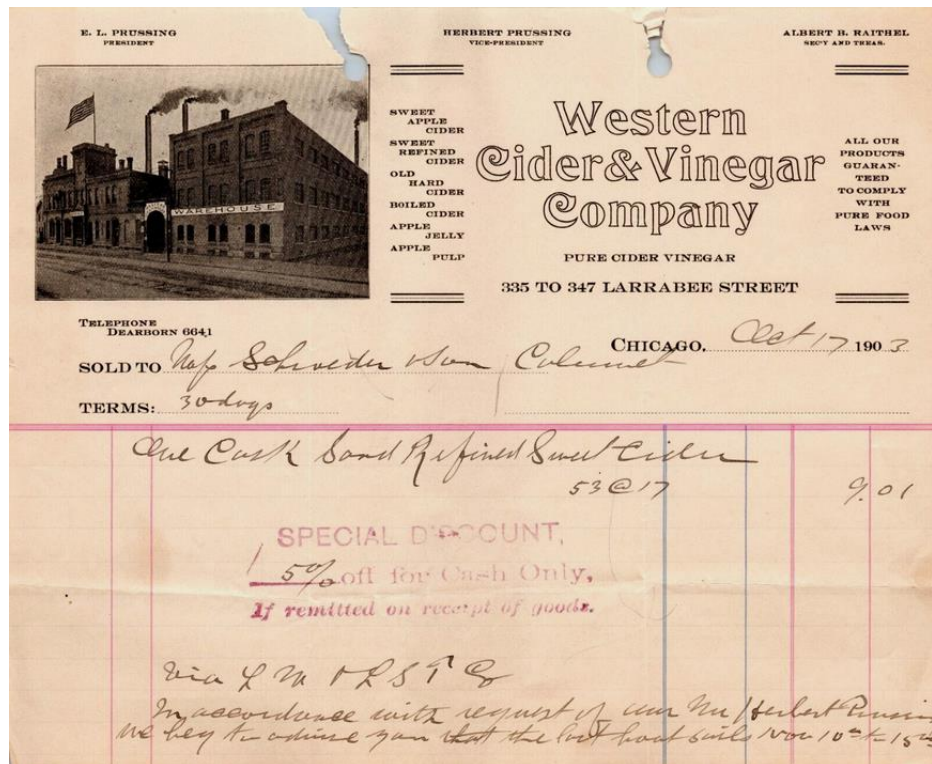 E. L. PRUSSING
PRESIDENT
HERBERT PRUSSING
VICE-PRESIDENT
ALBERT B. RAITHEL
SEC'Y AND TREAS.
WAREHOUSE
SWEET
APPLE
CIDER
SWEET
REFINED
CIDER
OLD
HARD
CIDER
BOILED
CIDER
APPLE
JELLY
APPLE
PULP
Western
Cider & Vinegar
Company
PURE CIDER VINEGAR
335 TO 347 LARRABEE STREET
ALL OUR
PRODUCTS
GUARAN-
TEED
TO COMPLY
WITH
PURE FOOD
LAWS
TELEPHONE
DEARBORN 6641
CHICAGO, Oct 17 1903
SOLD TO Schroeder & Son Calumet
TERMS: 30 days
One Cask Sand Refined Sweet Cider
53 @ 17 9.01
SPECIAL DISCOUNT,
5% off for Cash Only,
If remitted on receipt of goods.
Via L M & L S T Co
In accordance with request of our Mr Herbert
we beg to advise you that the last boat sails Nov 10th to 15th